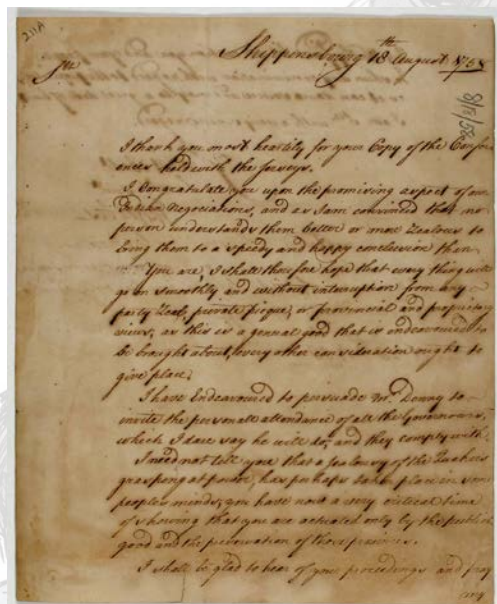 211A
Shippensburg 18th August 1758
Sir
8/18/58
I thank you most heartily for your Copy of the Confer
ences held with the Jerseys.
I Congratulate you upon the promising aspect of our
Indian Negociations, and as I am convinced that no
person understands them better or more Zealous to
bring them to a speedy and happy conclusion than
You are, I shall therefore hope that every thing will
go on smoothly and without interruption from any
party Zeal, private pique, or provincial and proprietary
views, as this is a general good that is endeavoured to
be brought about, every other consideration ought to
give place.
I have Endeavoured to persuade Mr. Denny to
invite the personall attendance of all the Governours,
which I dare say he will do, and they comply with.
I need not tell you that a Jealousy of the Quakers
grasping at power, has perhaps taken place in some
peoples minds, you have now a very critical time
of showing that you are actuated only by the publick
good and the preservation of those provinces.
I shall be glad to hear of your proceedings and pray